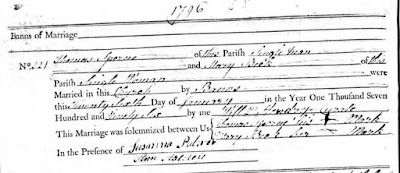 1796
Banns of Marriage
No. 221 Thomas Sporne of this Parish Single Man
and Mary Beck of this
Parish Single Woman were
Married in this Church by Banns
this Twenty Sixth Day of January in the Year One Thousand Seven
Hundred and Ninety Six by me Curate
This Marriage was solemnized between Us Thomas Sporne his + Mark
Mary Beck her Mark
In the Presence of Susanna
Ann